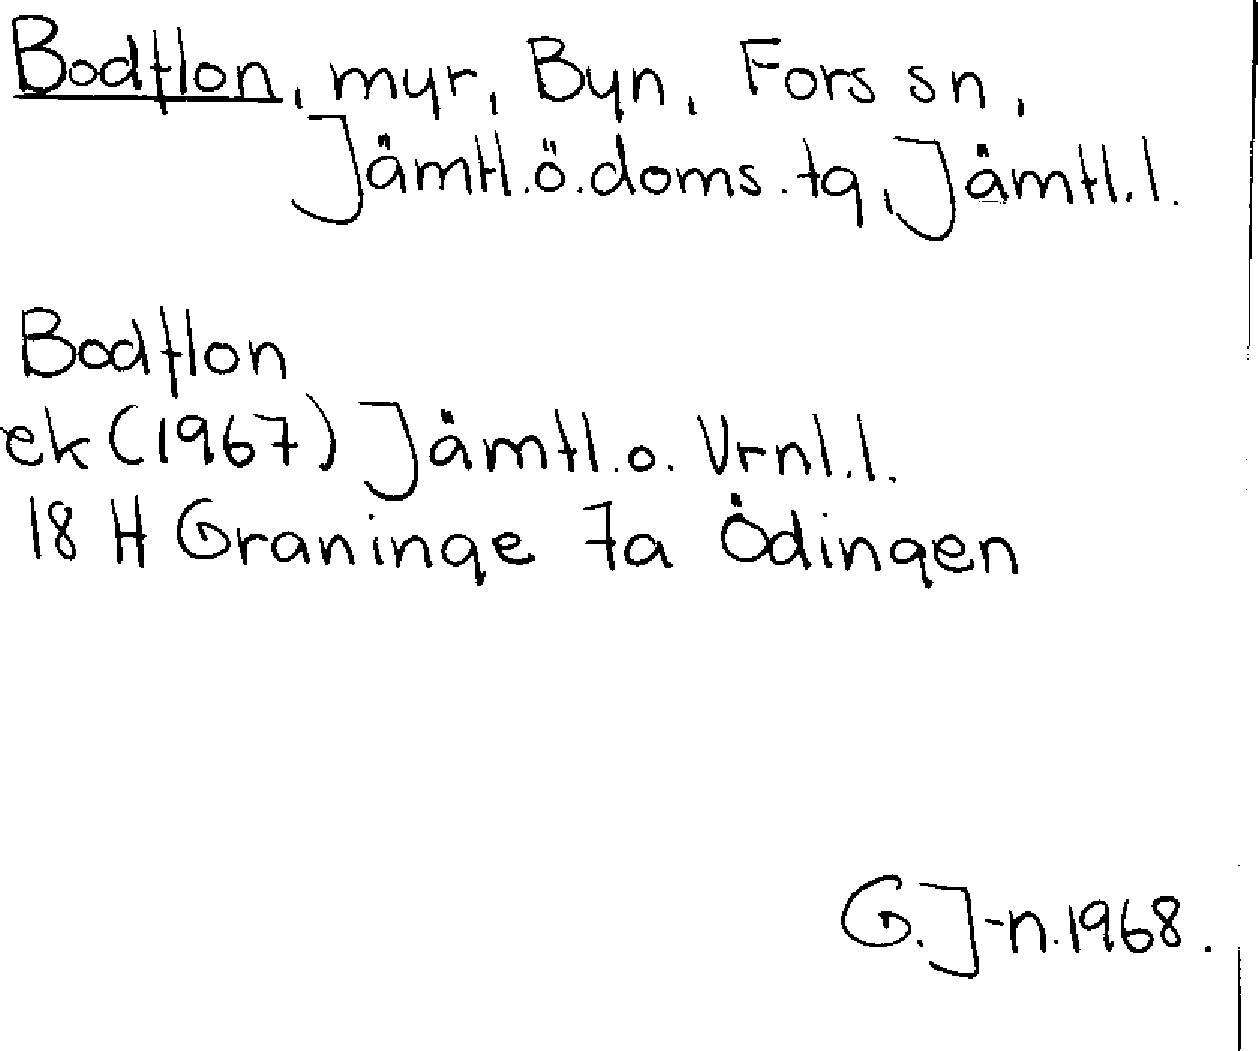 Bodflon, myr, Byn, Fors sn,
Jämtl.ö.doms.tg, Jämtl.l.
Bodflon
ek (1967) Jämtl.o. Vrnl.l.
18 H Graninge 7a Ödingen
G.J-n.1968.